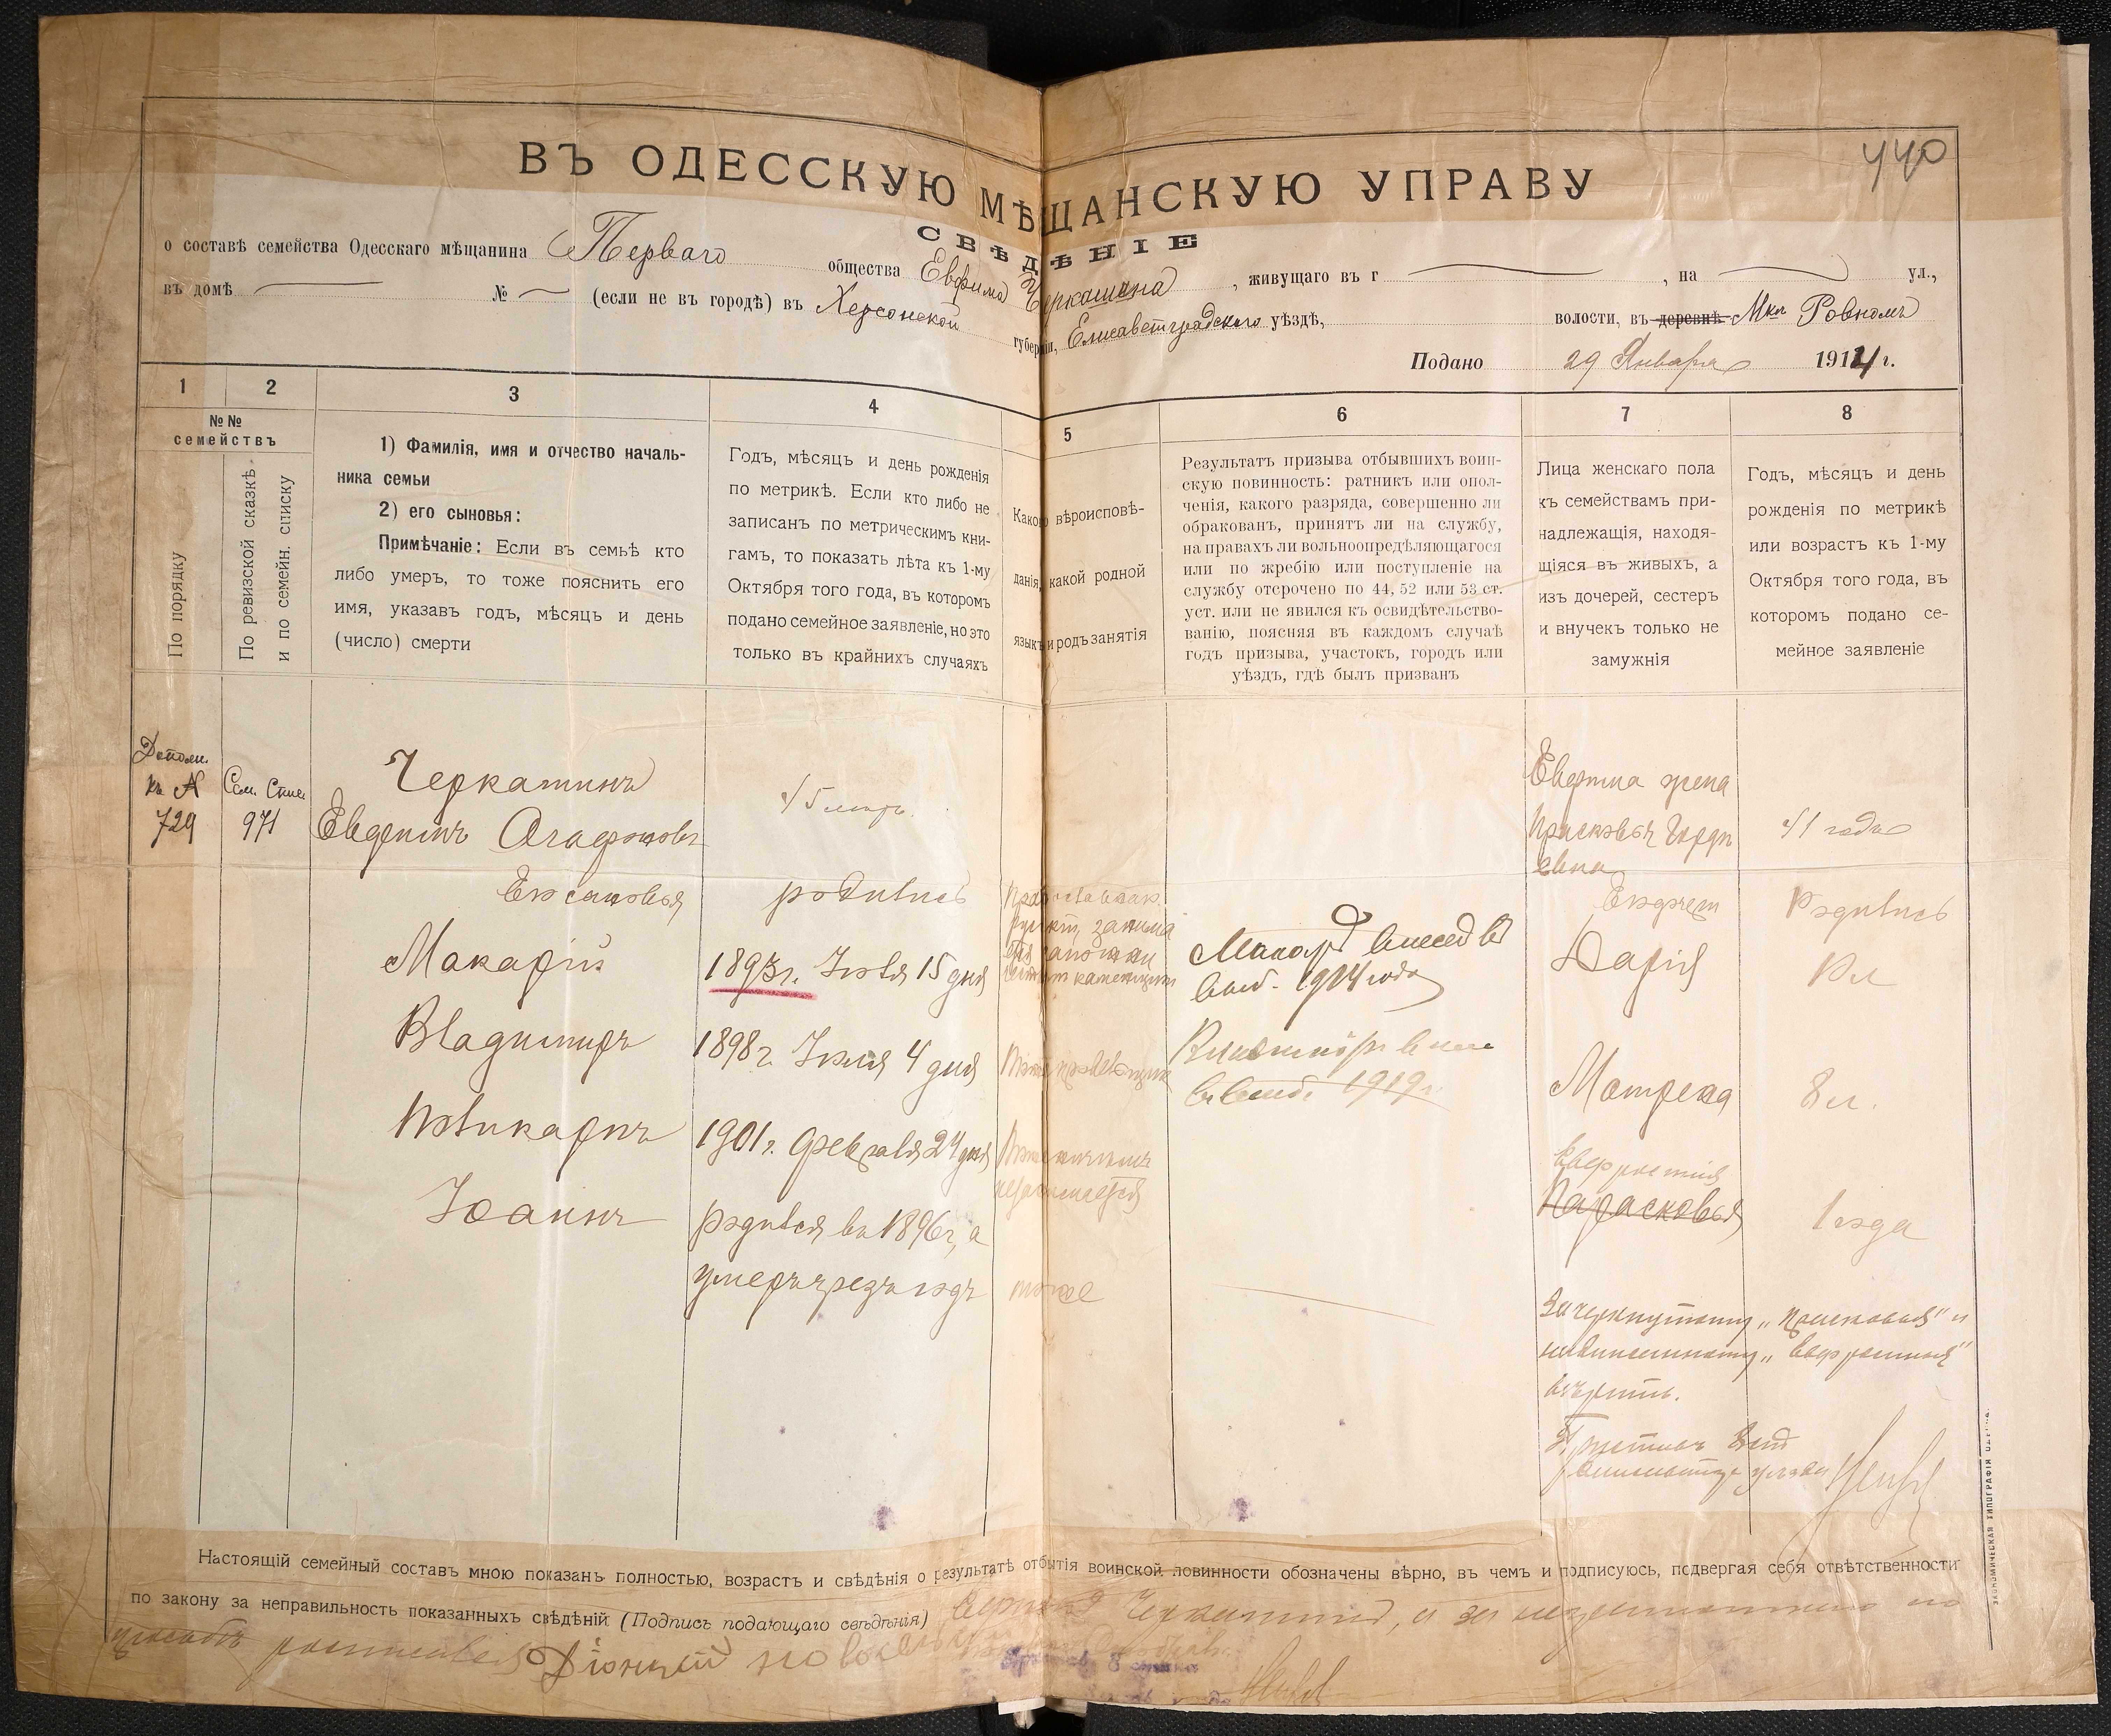 440
ВЪ ОДЕССКУЮ МѢЩАНСКУЮ УПРАВУ
СВѢДѢНІЕ
о составѣ семейства Одесскаго мѣщанина Перваго общества Евфима Черкашина, живущаго въ г , на ул.,
въ домѣ № (если не въ городѣ) въ Херсонской губерніи, Елисаветградскаго уѣздѣ, волости, въ деревнѣ Мкѣ Ровномъ
Подано 29 Января 1914 г.
1 2 3 4 5 6 7 8
№№
семействъ
По порядку
По ревизской сказкѣ
и по семейн. списку
1) Фамилія, имя и отчество началь-
ника семьи
2) его сыновья:
Примѣчаніе: Если въ семьѣ кто
либо умеръ, то тоже пояснить его
имя, указавъ годъ, мѣсяцъ и день
(число) смерти
Годъ, мѣсяцъ и день рожденія
по метрикѣ. Если кто либо не
записанъ по метрическимъ кни-
гамъ, то показать лѣта къ 1-му
Октября того года, въ которомъ
подано семейное заявленіе, но это
только въ крайнихъ случаяхъ
Какого вѣроисповѣ-
данія, какой родной
языкъ и родъ занятія
Результатъ призыва отбывшихъ воин-
скую повинность: ратникъ или опол-
ченія, какого разряда, совершенно ли
обракованъ, принятъ ли на службу,
на правахъ ли вольноопредѣляющагося
или по жребію или поступленіе на
службу отсрочено по 44, 52 или 53 ст.
уст. или не явился къ освидѣтельство-
ванію, поясняя въ каждомъ случаѣ
годъ призыва, участокъ, городъ или
уѣздъ, гдѣ былъ призванъ
Лица женскаго пола
къ семействамъ при-
надлежащія, находя-
щіяся въ живыхъ, а
изъ дочерей, сестеръ
и внучекъ только не
замужнія
Годъ, мѣсяцъ и день
рожденія по метрикѣ
или возрастъ къ 1-му
Октября того года, въ
которомъ подано се-
мейное заявленіе
Дополн.
къ №
729
Сем. Спис.
971
Черкашинъ
Евфимъ Агафоновъ
45 лѣтъ
Его сыновья
родились
Макарій
1893 г. Іюля 15 дня
Владимиръ
1898 г. Іюля 4 дня
Поликарпъ
1901 г. Февраля 24 дня
Іоаннъ
родился въ 1896 г, а
умеръ чрезъ годъ
тоже
Макар внесен в
1914 года
1919 г.
Евфима жена
Прасковья Горде
евна
41 года
Его дочери
Родились
Дарія
Матрена
8 л.
Евфросинія
Парасковья
1 года
Зачеркнутому „Прасковья" и
надписанному „Евфросинья"
вѣрить.
Настоящій семейный составъ мною показанъ полностью, возрастъ и свѣдѣнія о результатѣ отбытія воинской повинности обозначены вѣрно, въ чемъ и подписуюсь, подвергая себя отвѣтственности
по закону за неправильность показанныхъ свѣдѣній (Подпись подающаго свѣдѣнія) Черкашинъ, а за неграмотного по
просьбѣ росписался